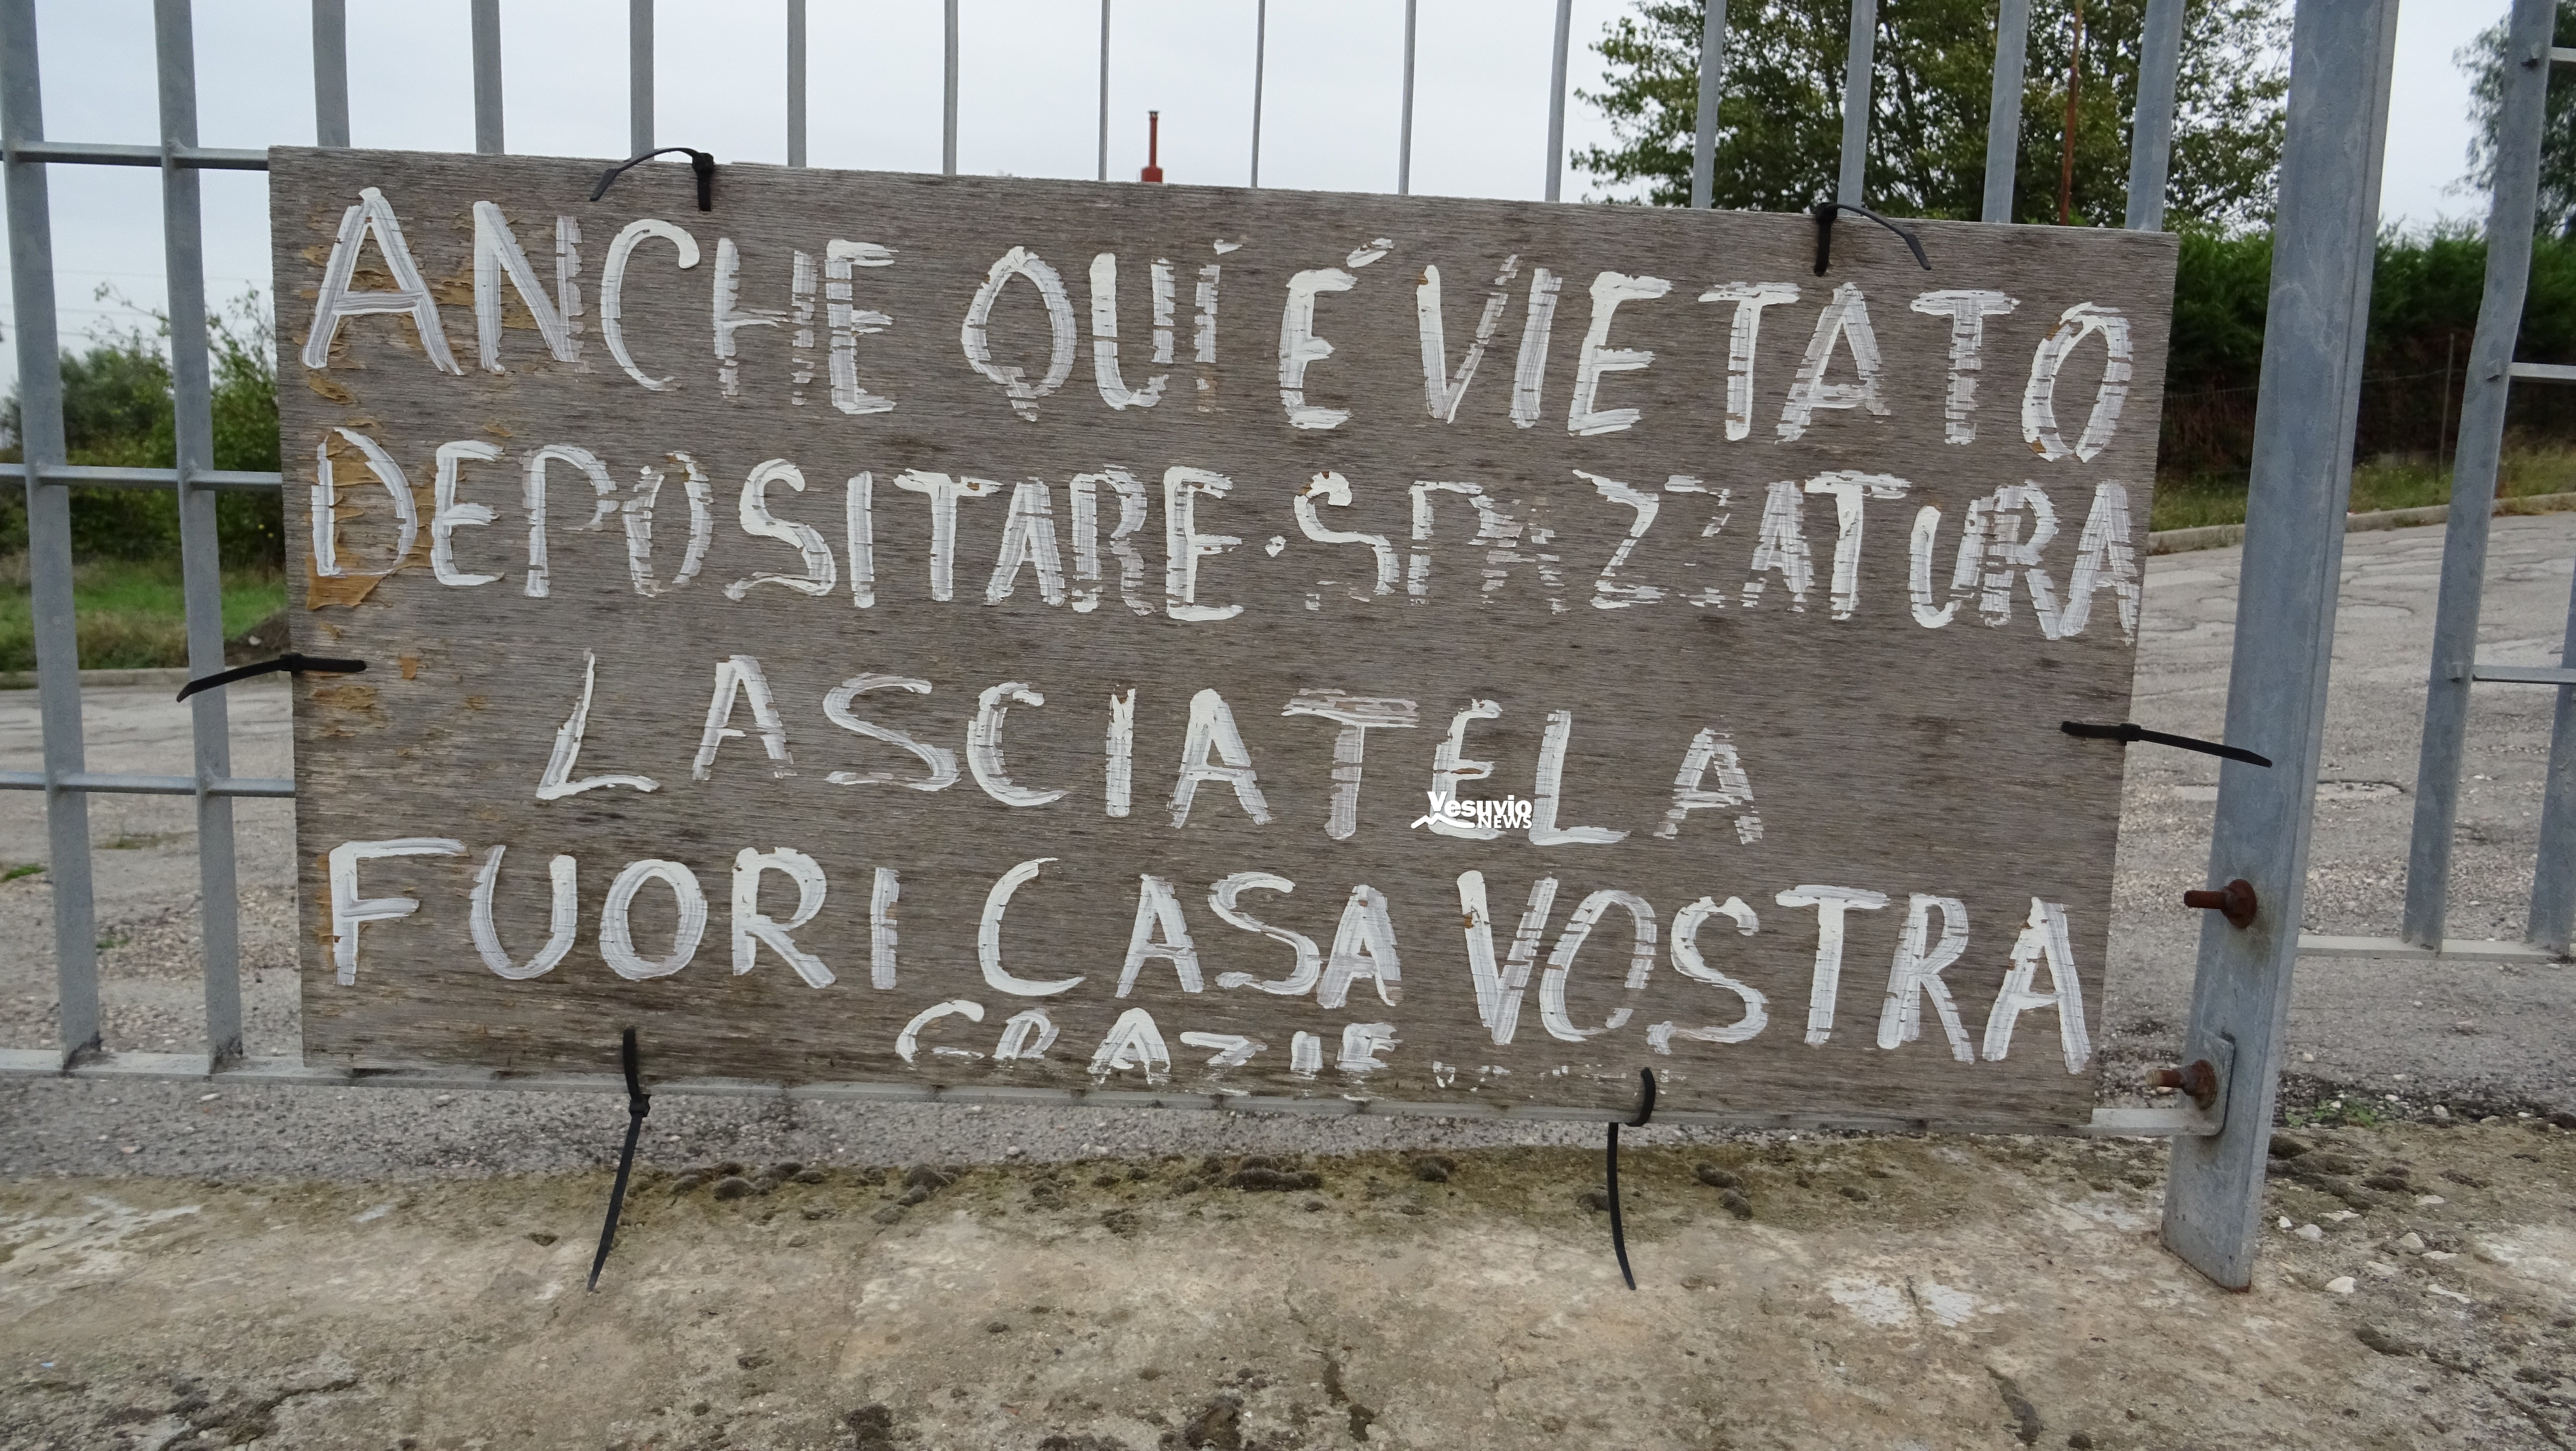 ANCHE QUÍ É VIETATO
DEPOSITARE·SPAZZATURA
LASCIATELA
FUORI CASA VOSTRA
GRAZIE
Vesuvio
NEWS